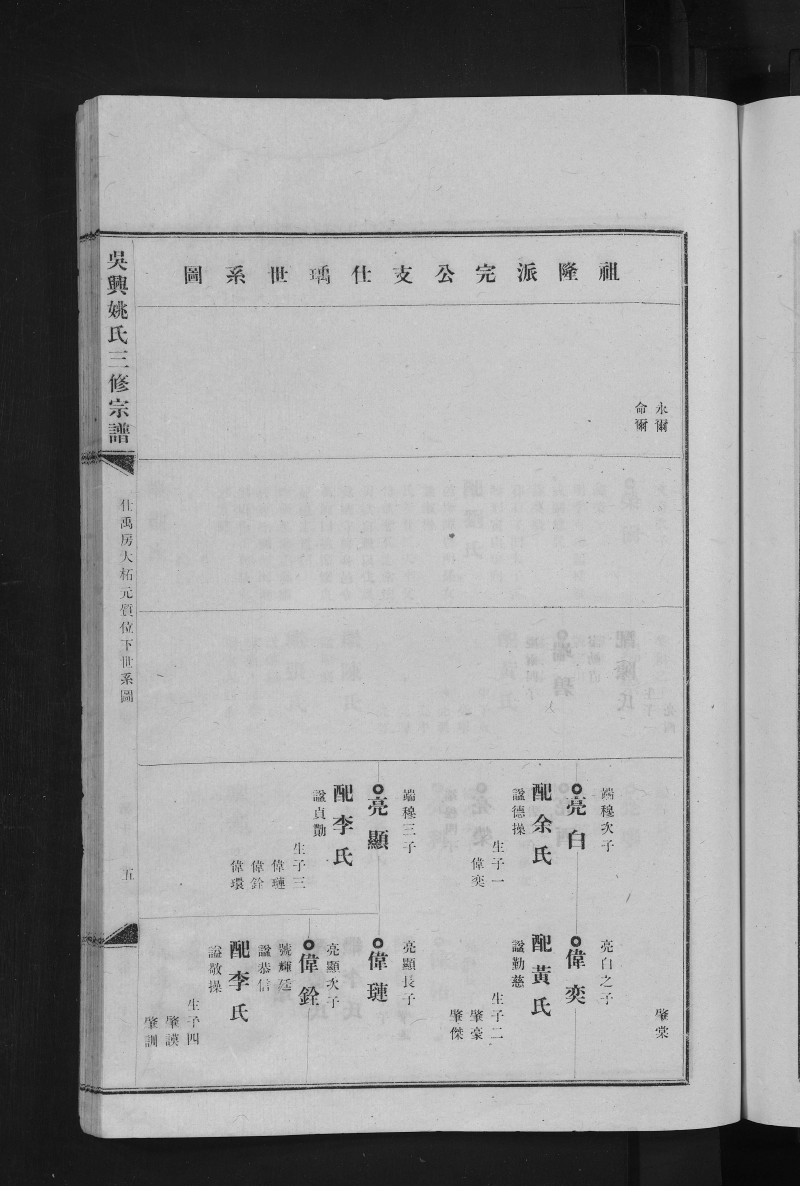 祖隆派完公支仕瑀世系圖
永爾
命爾
端穆次子
亮白
配余氏
諡德操
生子一
偉奕
端穆三子
亮顯
配李氏
諡貞勤
生子三
偉璉
偉銓
偉環
肇棠
亮白之子
偉奕
配黃氏
諡勤慈
生子二
肇豪
肇傑
亮顯長子
偉璉
亮顯次子
偉銓
號輝廷
諡恭信
配李氏
諡敬操
生子四
肇謨
肇訓
吳興姚氏三修宗譜
仕禹房大柘元質位下世系圖
五